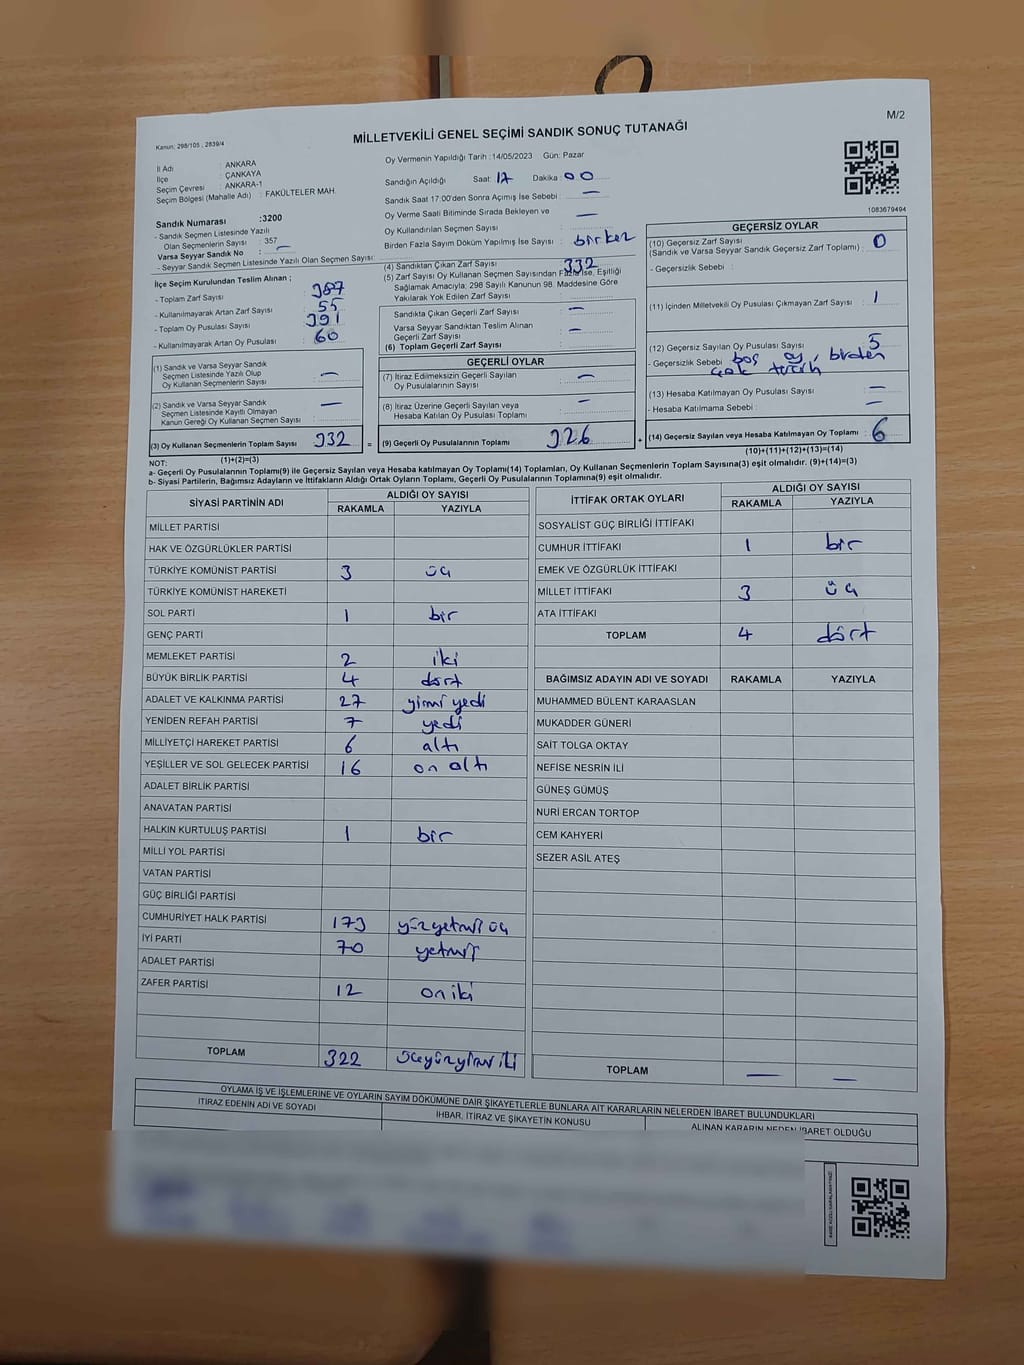 M/2
Kanun: 298/105 , 2839/4
MİLLETVEKİLİ GENEL SEÇİMİ SANDIK SONUÇ TUTANAĞI
İl Adı : ANKARA
İlçe : ÇANKAYA
Seçim Çevresi : ANKARA-1
Seçim Bölgesi (Mahalle Adı) : FAKÜLTELER MAH.
Sandık Numarası :3200
- Sandık Seçmen Listesinde Yazılı
Olan Seçmenlerin Sayısı : 357
Varsa Seyyar Sandık No : —
- Seyyar Sandık Seçmen Listesinde Yazılı Olan Seçmen Sayısı:
Oy Vermenin Yapıldığı Tarih :14/05/2023 Gün: Pazar
Sandığın Açıldığı Saat: 17 Dakika : 00
Sandık Saat 17:00'den Sonra Açılmış İse Sebebi : —
Oy Verme Saati Bitiminde Sırada Bekleyen ve
Oy Kullandırılan Seçmen Sayısı : —
Birden Fazla Sayım Döküm Yapılmış İse Sayısı : bir kez
1083679494
İlçe Seçim Kurulundan Teslim Alınan ;
- Toplam Zarf Sayısı : 387
- Kullanılmayarak Artan Zarf Sayısı : 55
- Toplam Oy Pusulası Sayısı : 391
- Kullanılmayarak Artan Oy Pusulası : 60
(1) Sandık ve Varsa Seyyar Sandık
Seçmen Listesinde Yazılı Olup
Oy Kullanan Seçmenlerin Sayısı : —
(2) Sandık ve Varsa Seyyar Sandık
Seçmen Listesinde Kayıtlı Olmayan
Kanun Gereği Oy Kullanan Seçmen Sayısı : —
(3) Oy Kullanan Seçmenlerin Toplam Sayısı : 332 =
(1)+(2)=(3)
(4) Sandıktan Çıkan Zarf Sayısı : 332
(5) Zarf Sayısı Oy Kullanan Seçmen Sayısından Fazla İse, Eşitliği
Sağlamak Amacıyla; 298 Sayılı Kanunun 98. Maddesine Göre
Yakılarak Yok Edilen Zarf Sayısı :
Sandıkta Çıkan Geçerli Zarf Sayısı : —
Varsa Seyyar Sandıktan Teslim Alınan
Geçerli Zarf Sayısı : —
(6) Toplam Geçerli Zarf Sayısı :
GEÇERLİ OYLAR
(7) İtiraz Edilmeksizin Geçerli Sayılan
Oy Pusulalarının Sayısı : —
(8) İtiraz Üzerine Geçerli Sayılan veya
Hesaba Katılan Oy Pusulası Toplamı : —
(9) Geçerli Oy Pusulalarının Toplamı : 326 +
GEÇERSİZ OYLAR
(10) Geçersiz Zarf Sayısı
(Sandık ve Varsa Seyyar Sandık Geçersiz Zarf Toplamı) : 0
- Geçersizlik Sebebi :
(11) İçinden Milletvekili Oy Pusulası Çıkmayan Zarf Sayısı : 1
(12) Geçersiz Sayılan Oy Pusulası Sayısı : 5
- Geçersizlik Sebebi : boş oy, birden
çok tercih
(13) Hesaba Katılmayan Oy Pusulası Sayısı : —
- Hesaba Katılmama Sebebi : —
(14) Geçersiz Sayılan veya Hesaba Katılmayan Oy Toplamı : 6
(10)+(11)+(12)+(13)=(14)
NOT:
a- Geçerli Oy Pusulalarının Toplamı(9) ile Geçersiz Sayılan veya Hesaba Katılmayan Oy Toplamı(14) Toplamları, Oy Kullanan Seçmenlerin Toplam Sayısına(3) eşit olmalıdır. (9)+(14)=(3)
b- Siyasi Partilerin, Bağımsız Adayların ve İttifakların Aldığı Ortak Oyların Toplamı, Geçerli Oy Pusulalarının Toplamına(9) eşit olmalıdır.
SİYASİ PARTİNİN ADI ALDIĞI OY SAYISI
RAKAMLA YAZIYLA
MİLLET PARTİSİ
HAK VE ÖZGÜRLÜKLER PARTİSİ
TÜRKİYE KOMÜNİST PARTİSİ 3 üç
TÜRKİYE KOMÜNİST HAREKETİ
SOL PARTİ 1 bir
GENÇ PARTİ
MEMLEKET PARTİSİ 2 iki
BÜYÜK BİRLİK PARTİSİ 4 dört
ADALET VE KALKINMA PARTİSİ 27 yirmi yedi
YENİDEN REFAH PARTİSİ 7 yedi
MİLLİYETÇİ HAREKET PARTİSİ 6 altı
YEŞİLLER VE SOL GELECEK PARTİSİ 16 on altı
ADALET BİRLİK PARTİSİ
ANAVATAN PARTİSİ
HALKIN KURTULUŞ PARTİSİ 1 bir
MİLLİ YOL PARTİSİ
VATAN PARTİSİ
GÜÇ BİRLİĞİ PARTİSİ
CUMHURİYET HALK PARTİSİ 173 yüzyetmiş üç
İYİ PARTİ 70 yetmiş
ADALET PARTİSİ
ZAFER PARTİSİ 12 on iki
TOPLAM 322 üçyüzyirmi iki
İTTİFAK ORTAK OYLARI ALDIĞI OY SAYISI
RAKAMLA YAZIYLA
SOSYALİST GÜÇ BİRLİĞİ İTTİFAKI
CUMHUR İTTİFAKI 1 bir
EMEK VE ÖZGÜRLÜK İTTİFAKI
MİLLET İTTİFAKI 3 üç
ATA İTTİFAKI
TOPLAM 4 dört
BAĞIMSIZ ADAYIN ADI VE SOYADI RAKAMLA YAZIYLA
MUHAMMED BÜLENT KARAASLAN
MUKADDER GÜNERİ
SAİT TOLGA OKTAY
NEFİSE NESRİN İLİ
GÜNEŞ GÜMÜŞ
NURİ ERCAN TORTOP
CEM KAHYERİ
SEZER ASİL ATEŞ
TOPLAM — —
OYLAMA İŞ VE İŞLEMLERİNE VE OYLARIN SAYIM DÖKÜMÜNE DAİR ŞİKAYETLERLE BUNLARA AİT KARARLARIN NELERDEN İBARET BULUNDUKLARI
İTİRAZ EDENİN ADI VE SOYADI İHBAR, İTİRAZ VE ŞİKAYETİN KONUSU ALINAN KARARIN NEDEN İBARET OLDUĞU